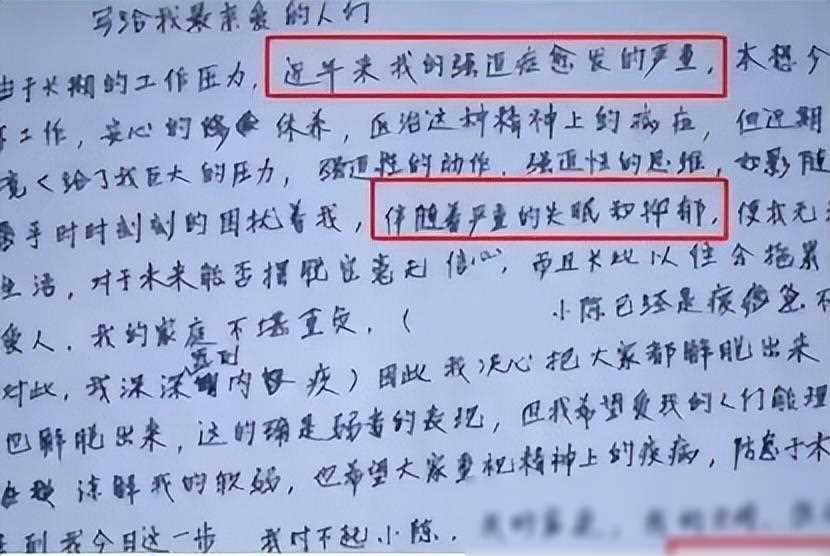 写给我最亲爱的人们
由于长期的工作压力，近年来我的强迫症愈发的严重，本想今
工作，安心的修 休养，医治这种精神上的病症，但近期
境 给了我巨大的压力，强迫性的动作，强迫性的思维，如影随
乎时时刻刻的困扰着我，伴随着严重的失眠和抑郁，使我无
生活，对于未来能否摆脱它毫无信心，而且长此以往会拖累
爱人，我的家庭不堪重负，（ 小陈已经是疲惫
对此，我深深感到内疚）因此我决心把大家都解脱出来
己解脱出来，这的确是弱者的表现，但我希望爱我的人们能理
谅解我的软弱，也希望大家重视精神上的疾病，防患于未
到我今日这一步 我对不起小陈，